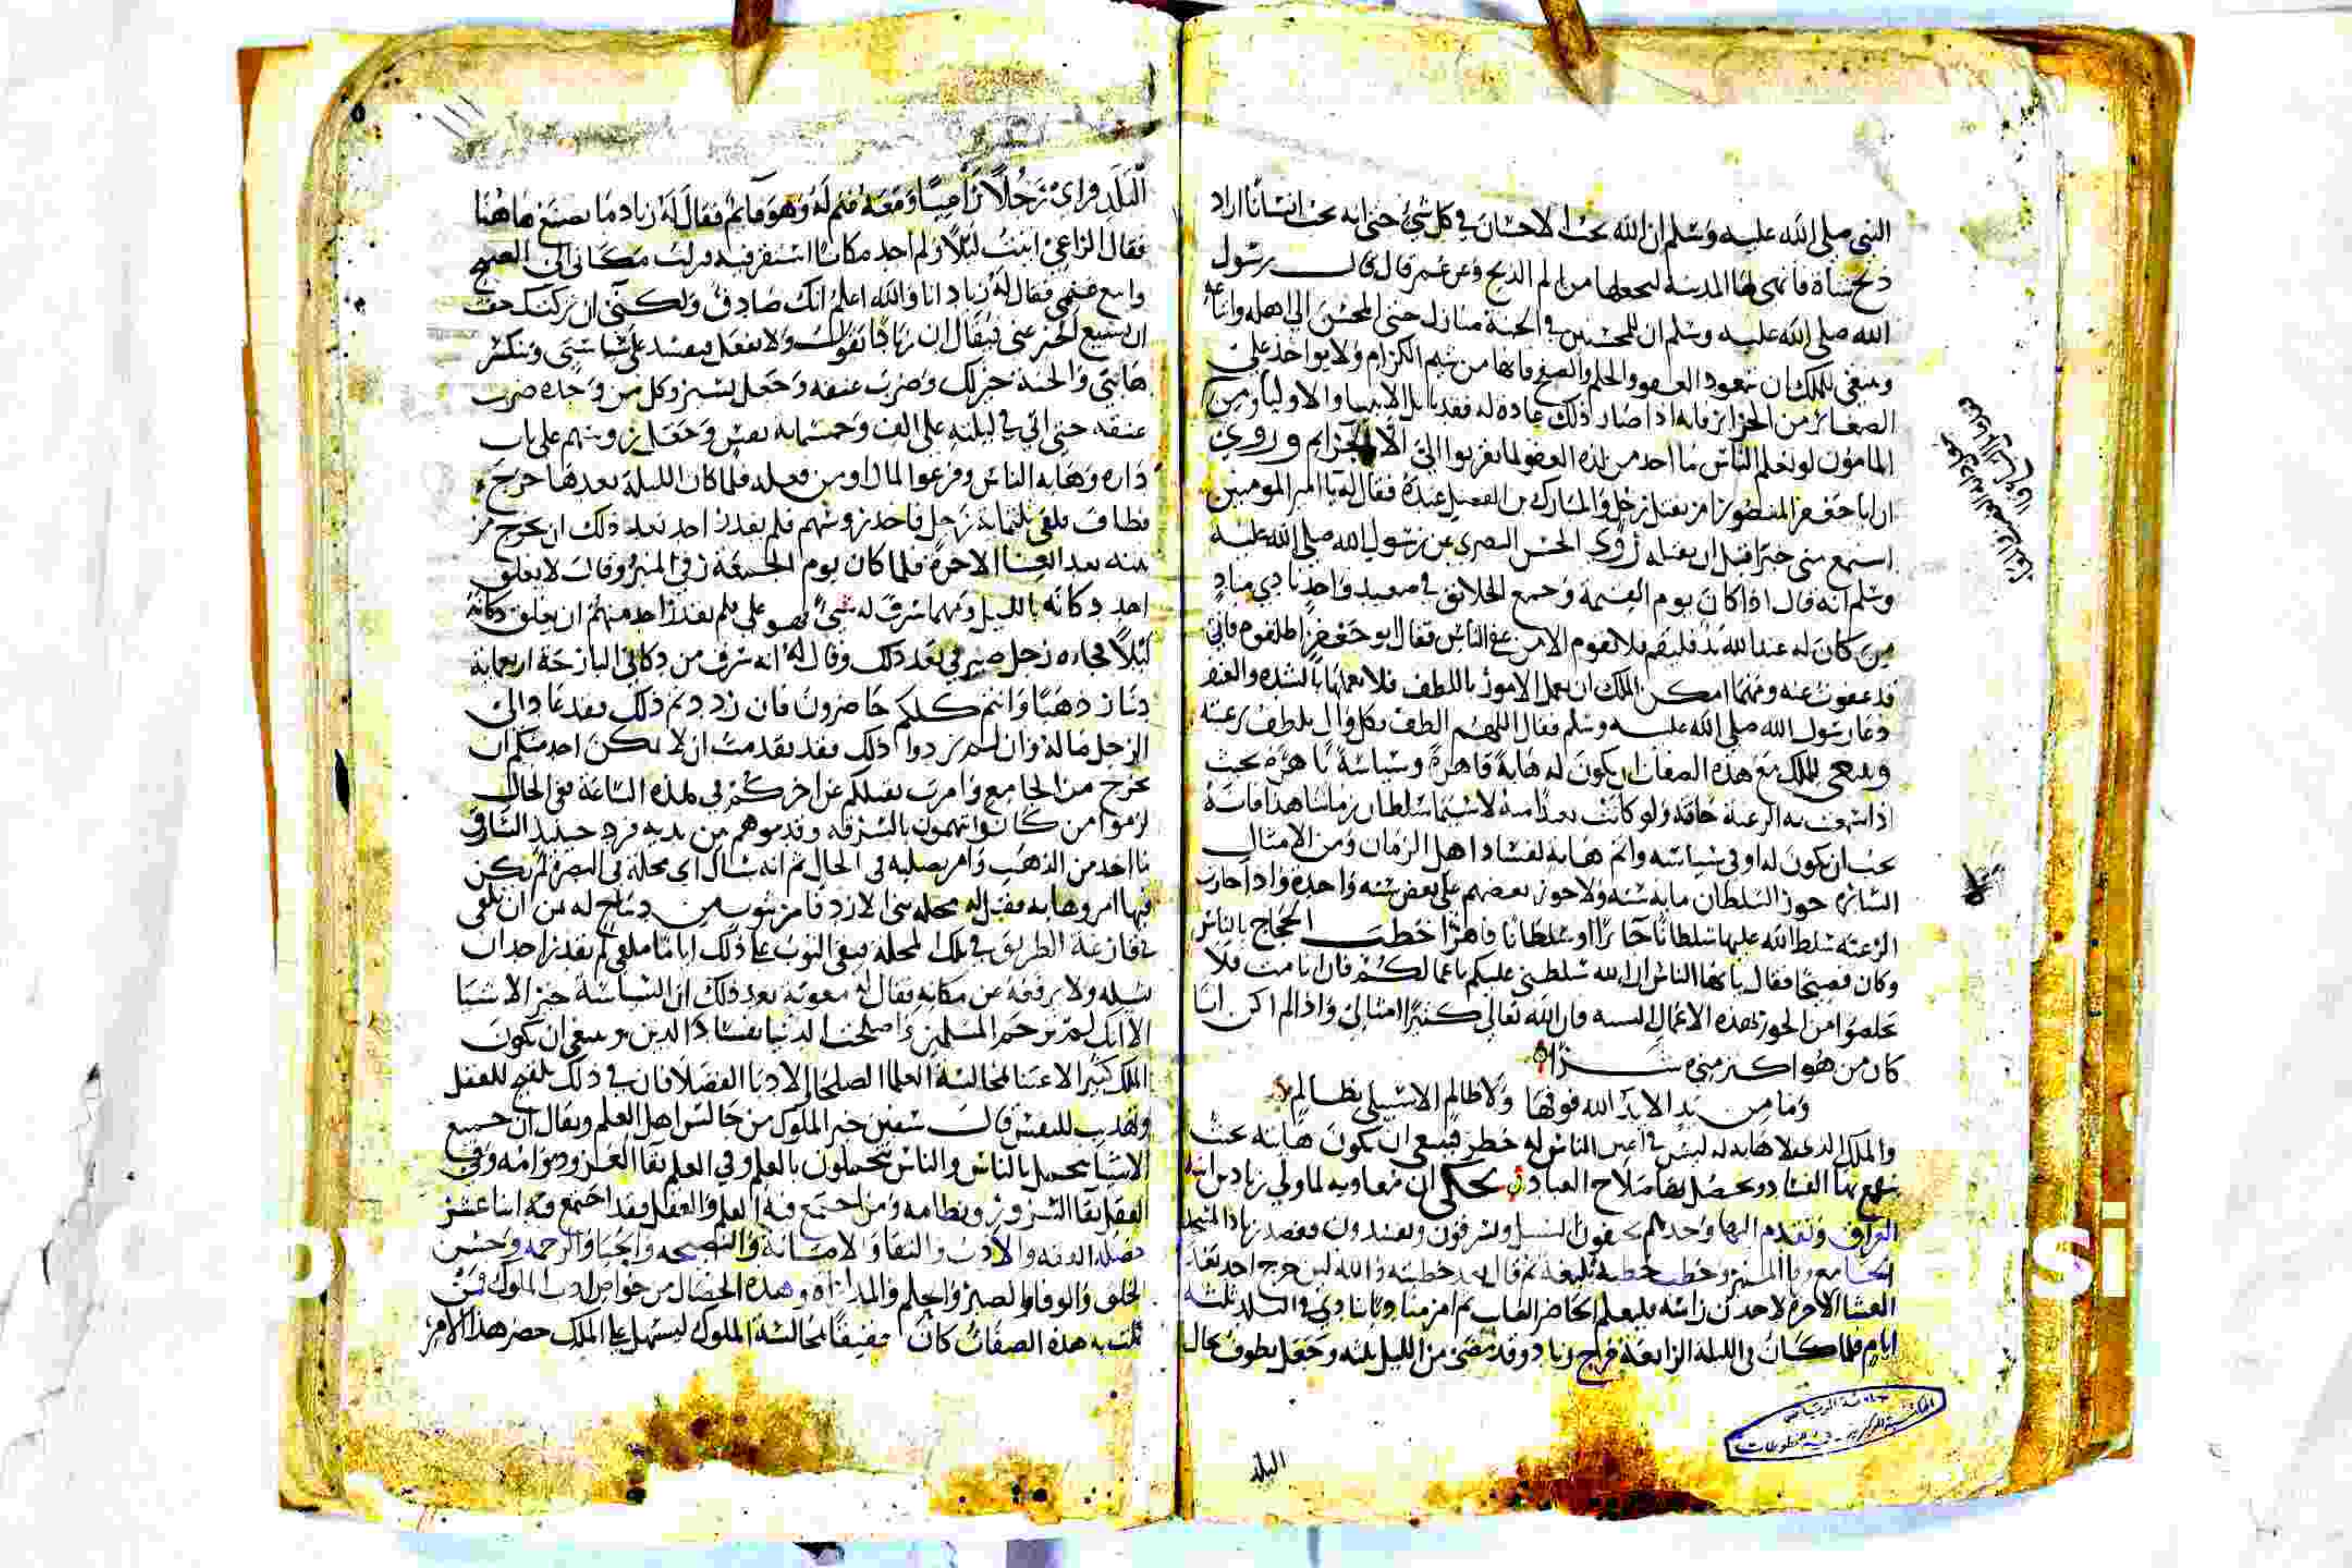 النبي صلى الله عليه وسلم ان الله يحب الاحسان في كل شيء حتى انه يحب انسانا اراد
ذبح شاة فانهى لها المدية ليجعلها من الم الذبح وعن عمر قال قال رسول
الله صلى الله عليه وسلم ان للمحسنين في الجنة منازل حتى المحسن الى اهله
وينبغي للملك ان يتعود العفو والحلم والصفح فانها من شيم الكرام ولا يواخذ على
الصغائر من الجرائر فانه اذا صار ذلك عادة له فقد الانبيا والاوليا ومن
المامون لو تعلم الناس ما احد من لذة العفو لما تقربوا الي الا بالجرايم وروي
ان ابا جعفر المنصور امر بقتل رجل والمبارك بن الفضيل عنده فقال له يا امير المومنين
استمع مني خبرا قبل ان تقتله روى الحسن البصري عن رسول الله صلى الله عليه
وسلم انه قال اذا كان يوم القيمة وجمع الخلائق في صعيد واحد نادي مناد
من كان له عند الله يد فليقم فلا يقوم الا من عفى الناس فقال ابو جعفر اطلقوه فاني
قد عفوت عنه ومهما امكن الملك ان يعمل الامور باللطف فلا يعملها بالشدة والعنف
دعا رسول الله صلى الله عليه وسلم فقال اللهم الطف بكل وال يلطف برعيته
وينبغي للملك مع هذه الصفات ان يكون له هابة قاهرة وسياسة باهرة بحيث
اذا الرعية خافة ولو كانت بعدا منه لا سيما سلطان زماننا هذا فانه
يجب ان يكون له اوفى سياسه واتم هابة لفساد اهل الزمان ومن الامثال
السائرة جور السلطان مايه سنه ولا جور بعضهم على بعض سنه واحدة واذا جارت
الرعيه سلط الله عليها سلطانا جائرا او سلطانا قاهرا خطب الحجاج بالناس
وكان فصيحا فقال يا ايها الناس ان الله سلطني عليكم باعمالكم فان انا مت فلا
تخلصوا من الجور بهذه الاعمال السيه فان الله تعالى كثيرا امثالي واذا لم اكن انا
كان من هو اكثر مني شرا
وما من يد الا يد الله فوقها ولا ظالم الا سيبلى بظالم
والملك الذي لا هابة له ليس في اعين الناس له خطر فينبغي ان تكون هابته بحيث
بها الفساد ويحصل بها صلاح العباد يحكى ان معاويه لما ولي زياد بن ابيه
العراق وتقدم اليها وجدهم السبيل ويسرقون ويفسدون فقصد زياد المسجد
الجامع المنبر وخطب خطبة بليغة ثم قال بعد خطبته والله لين خرج احد بعد
العشا الاخرة لاخذن راسه فليعلم الحاضر الغايب ثم امر مناديا ينادي في البلد ثلثة
ايام فلما كان في الليلة الرابعة خرج زياد وقد مضى من الليل ثلثه وجعل يطوف محال
البلد
جامعة الرياض
المكتبة المركزية - قسم المخطوطات
البلد فراى رجلا راعيا ومعه غنم له وهو قايم فقال له زياد ما تصنع هاهنا
فقال الراعي اتيت ليلا ولم اجد مكانا استقر فيه فنزلت مكاني الى الصبح
وابيع غنمي فقال له زياد انا والله اعلم انك صادق ولكني ان تركتك خفت
ان يشيع الخبر عني فيقال ان زيادا يقول ولا يفعل فيفسد علي سياستي وتنكسر
هابتي والجنة خير لك وضرب عنقه وجعل يسير وكل من وجده ضرب
عنقه حتى اتى في ليلته على الف وخمسماية نفس وجعل روسهم على باب
داره وهابه الناس وفزعوا من فعله فلما كان الليلة بعدها خرج
فطاف فلقي ثلثماية رجل فاخذ روسهم فلم يقدر احد بعد ذلك ان يخرج من
بيته بعد العشا الاخرة فلما كان يوم الجمعة رقى المنبر وقال لا يغلق
احد دكانه بالليل ومهما سرق له شيء فهو علي فلم يقدر احد منهم ان يغلق دكانه
ليلا فجاءه رجل صيرفي بعد ذلك وقال له انه سرق من دكاني البارحة اربعماية
دينار ذهبا وانتم كلكم حاضرون فان رددتم ذلك فقد عاد الى
الرجل ماله وان لم تردوا ذلك فقد تقدمت ان لا يمكن احد منكم ان
يخرج من الجامع وامرت بقتلكم عن اخركم في هذه الساعة ففي الحال
لزموا من كانوا يتهمون بالسرقة وقدموهم بين يديه فرد حينيذ السارق
ما اخذ من الذهب وامر بصلبه في الحال ثم انه سال اي محلة في البصرة لم يكن
فيها امر وهابه فقيل له محلة بني الازد فامر بثوب من ديباج له ثمن ان يلقى
في قارعة الطريق في تلك المحلة فبقى الثوب على ذلك اياما ملقى لم يقدر احد ان
يشيله ولا يرفعه عن مكانه فقال له معوية بعد ذلك ان السياسة خير الاشيا
الا انك لم ترحم المسلمين واصلحت الدنيا بفساد الدين وينبغي ان يكون
الملك كثير الاعتنا لمجالسة العلما الصلحا الادبا الفضلا فان في ذلك تلقيح للعقل
وتهذيب للنفس قال سفين خير الملوك من جالس اهل العلم ويقال ان جميع
الاشيا تتجمل بالناس والناس يتجملون بالعلم وفي العلم بقا العز ودوامه وفي
العقل بقا السرور ونظامه ومن اجتمع فيه العلم والعقل فقد اجتمع فيه اثنا عشر
خصلة العفه والادب والتقا والامانة والنصيحه والحيا والرحمه وحسن
الخلق والوفا والصبر والحلم والمداراه وهذه الخصال من خواص ادب الملوك فمن
به هذه الصفات كان حقيقا لمجالسة الملوك ليسهل على الملك حصر هذا الامر